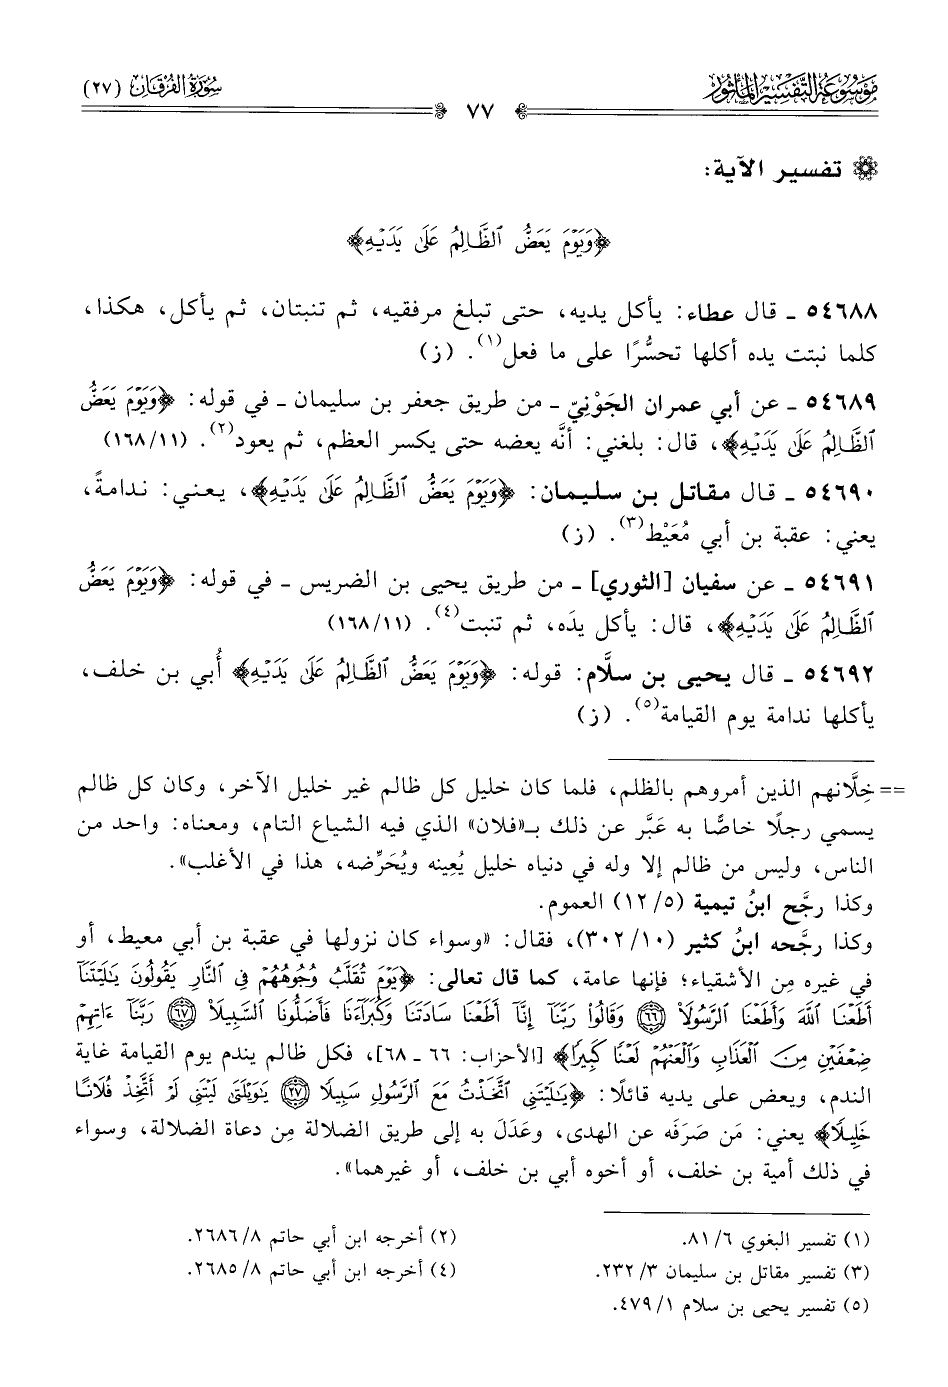 موسوعة التفسير المأثور
سورة الفرقان (٢٧)
٧٧
تفسير الآية:
﴿وَيَوْمَ يَعَضُّ ٱلظَّالِمُ عَلَىٰ يَدَيْهِ﴾
٥٤٦٨٨ ـ قال عطاء: يأكل يديه، حتى تبلغ مرفقيه، ثم تنبتان، ثم يأكل، هكذا،
كلما نبتت يده أكلها تحسُّرًا على ما فعل(١). (ز)
٥٤٦٨٩ ـ عن أبي عمران الجَوْنِيّ ـ من طريق جعفر بن سليمان ـ في قوله: ﴿وَيَوْمَ يَعَضُّ
ٱلظَّالِمُ عَلَىٰ يَدَيْهِ﴾، قال: بلغني: أنَّه يعضه حتى يكسر العظم، ثم يعود(٢). (١١/ ١٦٨)
٥٤٦٩٠ ـ قال مقاتل بن سليمان: ﴿وَيَوْمَ يَعَضُّ ٱلظَّالِمُ عَلَىٰ يَدَيْهِ﴾، يعني: ندامةً،
يعني: عقبة بن أبي مُعَيْط(٣). (ز)
٥٤٦٩١ ـ عن سفيان [الثوري] ـ من طريق يحيى بن الضريس ـ في قوله: ﴿وَيَوْمَ يَعَضُّ
ٱلظَّالِمُ عَلَىٰ يَدَيْهِ﴾، قال: يأكل يدَه، ثم تنبت(٤). (١١/ ١٦٨)
٥٤٦٩٢ ـ قال يحيى بن سلَّام: قوله: ﴿وَيَوْمَ يَعَضُّ ٱلظَّالِمُ عَلَىٰ يَدَيْهِ﴾ أُبي بن خلف،
يأكلها ندامة يوم القيامة(٥). (ز)
== خِلَّانهم الذين أمروهم بالظلم، فلما كان خليل كل ظالم غير خليل الآخر، وكان كل ظالم
يسمي رجلًا خاصًّا به عَبَّر عن ذلك بـ«فلان» الذي فيه الشياع التام، ومعناه: واحد من
الناس، وليس من ظالم إلا وله في دنياه خليل يُعِينه ويُحَرِّضه، هذا في الأغلب».
وكذا رجَّح ابنُ تيمية (٥/ ١٢) العموم.
وكذا رجَّحه ابنُ كثير (١٠/ ٣٠٢)، فقال: «وسواء كان نزولها في عقبة بن أبي معيط، أو
في غيره مِن الأشقياء؛ فإنها عامة، كما قال تعالى: ﴿يَوْمَ تُقَلَّبُ وُجُوهُهُمْ فِي ٱلنَّارِ يَقُولُونَ يَٰلَيْتَنَآ
أَطَعْنَا ٱللَّهَ وَأَطَعْنَا ٱلرَّسُولَا۠ ٦٦ وَقَالُوا۟ رَبَّنَآ إِنَّآ أَطَعْنَا سَادَتَنَا وَكُبَرَآءَنَا فَأَضَلُّونَا ٱلسَّبِيلَا۠ ٦٧ رَبَّنَآ ءَاتِهِمْ
ضِعْفَيْنِ مِنَ ٱلْعَذَابِ وَٱلْعَنْهُمْ لَعْنًا كَبِيرًا﴾ [الأحزاب: ٦٦ ـ ٦٨]، فكل ظالم يندم يوم القيامة غاية
الندم، ويعض على يديه قائلًا: ﴿يَٰلَيْتَنِى ٱتَّخَذْتُ مَعَ ٱلرَّسُولِ سَبِيلًا ٢٧ يَٰوَيْلَتَىٰ لَيْتَنِى لَمْ أَتَّخِذْ فُلَانًا
خَلِيلًا﴾ يعني: مَن صَرَفَه عن الهدى، وعَدَلَ به إلى طريق الضلالة مِن دعاة الضلالة، وسواء
في ذلك أمية بن خلف، أو أخوه أبي بن خلف، أو غيرهما».
(١) تفسير البغوي ٦/ ٨١.
(٢) أخرجه ابن أبي حاتم ٨/ ٢٦٨٦.
(٣) تفسير مقاتل بن سليمان ٣/ ٢٣٢.
(٤) أخرجه ابن أبي حاتم ٨/ ٢٦٨٥.
(٥) تفسير يحيى بن سلام ١/ ٤٧٩.